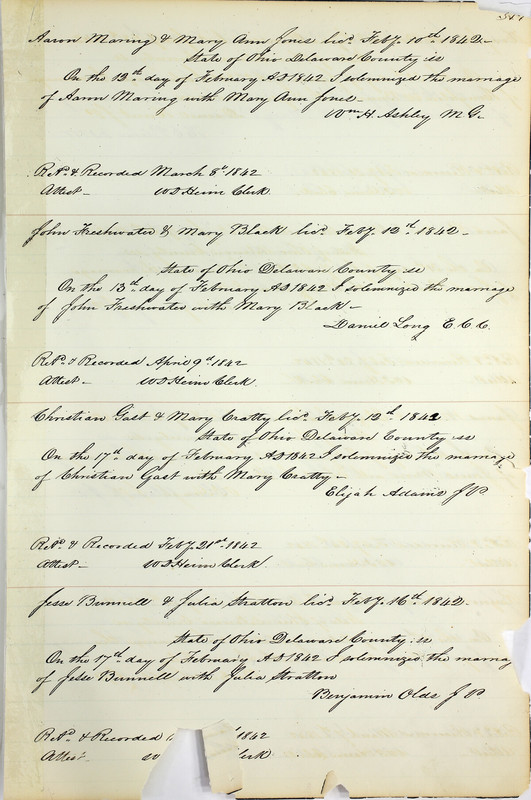 Aaron Maring & Mary Ann Jones licd. Feby. 10th. 1842.
State of Ohio Delaware County ss
On the 13th. day of February AD 1842 I solemnized the marriage
of Aaron Maring with Mary Ann Jones
Wm H. Ashley M.G.
Retd. & Recorded March 8th 1842
Attest WD Heim Clerk.
John Freshwater & Mary Black licd. Feby. 12th. 1842
State of Ohio Delaware County ss
On the 13th. day of February AD 1842 I solemnized the marriage
of John Freshwater with Mary Black
Daniel Long E.C.C.
Retd. & Recorded April 9th 1842
Attest WD Heim Clerk.
Christian Gast & Mary Cratty licd. Feby. 12th. 1842
State of Ohio Delaware County ss
On the 17th. day of February AD 1842 I solemnized the marriage
of Christian Gast with Mary Cratty
Elijah Adams JP
Retd. & Recorded Feby. 21st. 1842
Attest WD Heim Clerk.
Jesse Bunnell & Julia Stratton licd. Feby. 16th. 1842.
State of Ohio Delaware County ss
On the 17th. day of February AD 1842 I solemnized the marria
of Jesse Bunnell with Julia Stratton
Benjamin Olds JP
Retd. & Recorded 1842
Attest W lerk